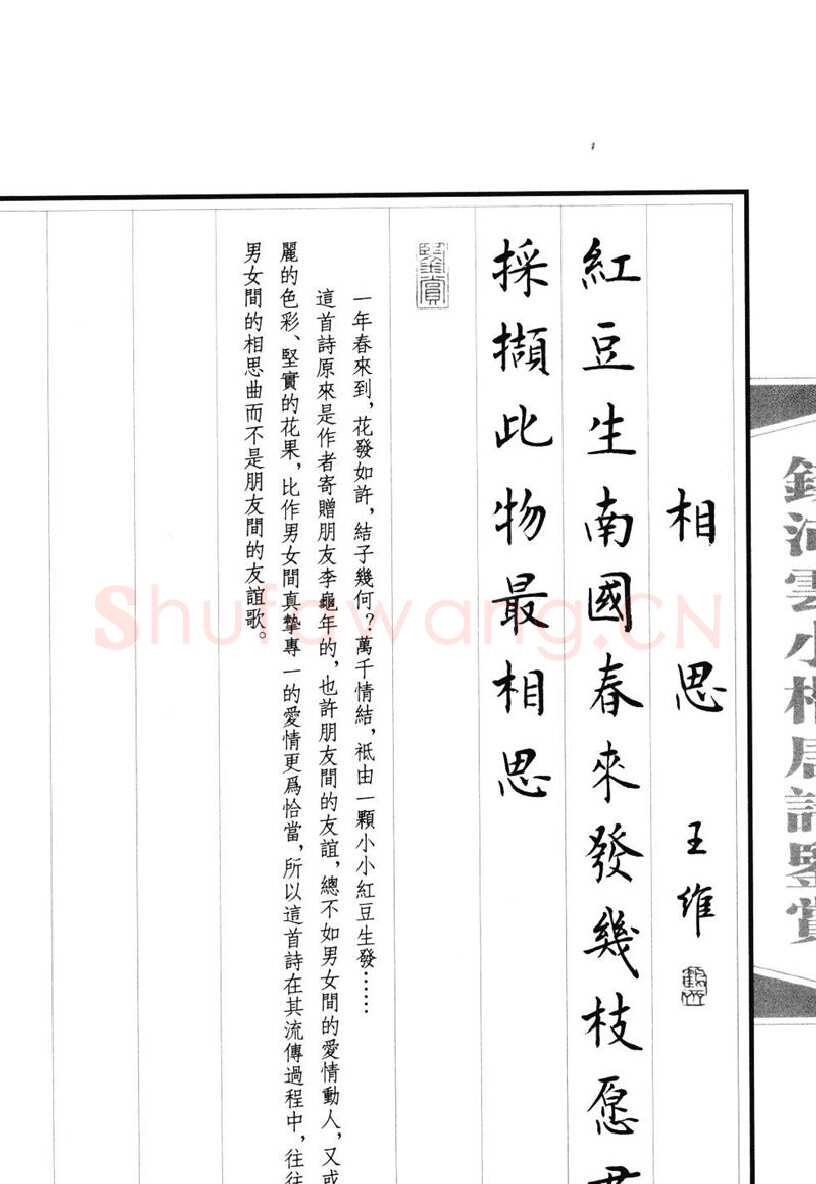 錢沛雲小楷唐詩鑒賞
相思 王維
紅豆生南國春來發幾枝愿君
採擷此物最相思
鑒賞
一年春來到,花發如許,結子幾何?萬千情結,祗由一顆小小紅豆生發……
這首詩原來是作者寄贈朋友李龜年的,也許朋友間的友誼,總不如男女間的愛情動人,又或
麗的色彩、堅實的花果,比作男女間真摯專一的愛情更爲恰當,所以這首詩在其流傳過程中,往往
男女間的相思曲而不是朋友間的友誼歌。
Shufawang.CN